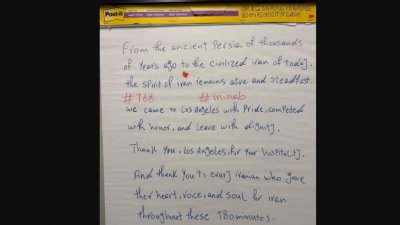 Post-it
From the ancient Persian of thousands
of years ago to the civilized iran of today,
the spirit of iran remains alive and steadfast.
#168 #minab
we came to Los Angeles with Pride, competed
with honor, and leave with dignity.
Thank you, Los Angeles, for your hospitality.
And thank you to every iranian who gave
their heart, voice, and soul for iran
throughout these 180 minutes.